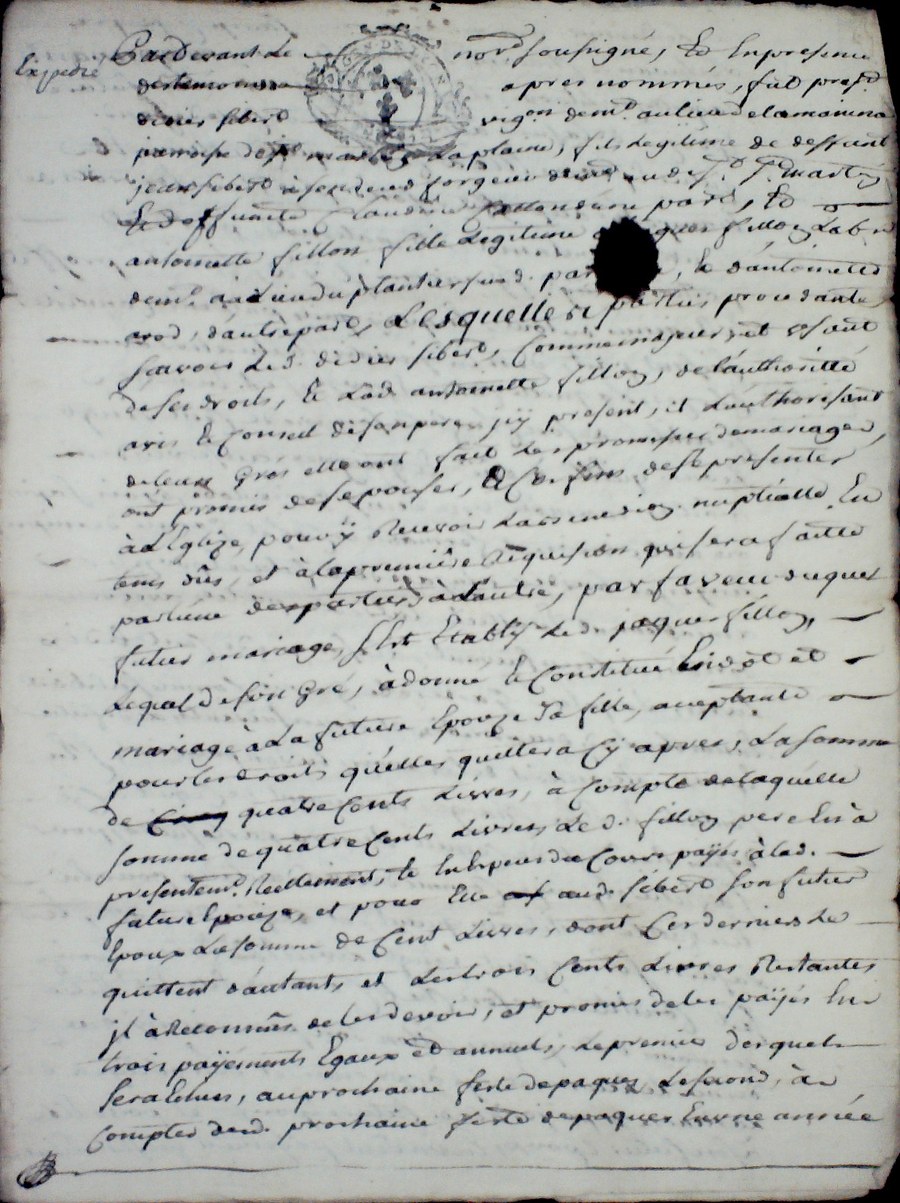 Expedié
Pardevant Le nore. soussigné, Et En presence
des temoins apres nommés, fut prest.
didier siberd vigon demt. au lieu de la
paroisse de st. La plaine, fils Legitime de deffunt
jean siberd
Et deffunte Claudine part, Et
antoinette fillon fille Legitime fillon Lab
demt. au Lieu du plantier susd. , & d'antoinette
, d'autre part, Lesquelles parties procedantes,
scavoir Led. didier siberd, comme majeur, et usant
de ses droits, & Lad. antoinette fillon, de l'authorité
avis & Conseil de son pere, jcy present, et L'authorisant
de leur gré elle ont fait Les promesses de mariage,
ont promis de s'epouser, & a Ces fins de se presenter
à L'Eglize, pour y Recevoir La benediction nuptialle En
tems dûs, et à la premiere Requisition qui sera faitte
par l'une des parties à L'autre, par faveur duquel
futur mariage, s'est Etably Led. jaques fillon,
Lequel de son Gré, à donné & Constitué En dot et
mariage à La future Epouze Sa fille, aceptante
pour les droits qu'elles quittera Cy apres, La somme
de quatre Cents Livres, à Compte de laquelle
somme de quatre Cents Livres Le d. fillon pere En à
presentemt. Reellement, & En Especes du Cours payés à lad.
future Epouze, et pour Elle aud. siberd son futur
Epoux La somme de Cent Livres, dont Ces derniers Le
quittent d'autants et Les trois Cents Livres Restantes
jl à Reconnus de les devoir, et promis de les payés En
trois payements Egaux Et annuels, Le premier desquels
sera Echus, au prochaine feste de paques Le second, à
Compter de d. prochaine feste de paques En une année